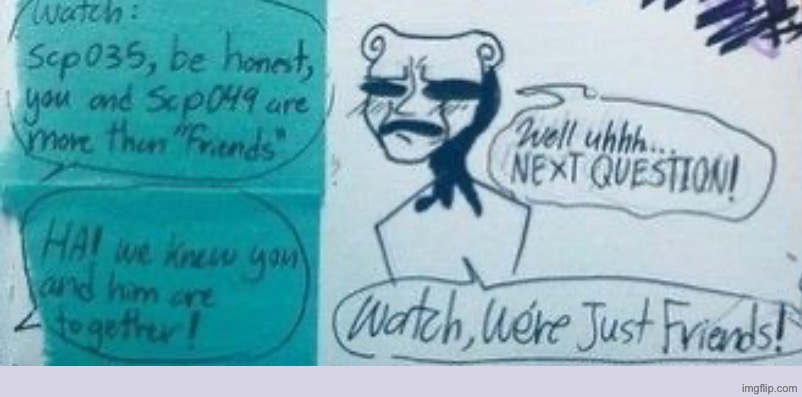 Watch:
Scp035, be honest,
you and Scp049 are
more than "Friends"
Well uhhh...
NEXT QUESTION!
HA! we knew you
and him are
together!
Watch, We're Just Friends!
imgflip.com